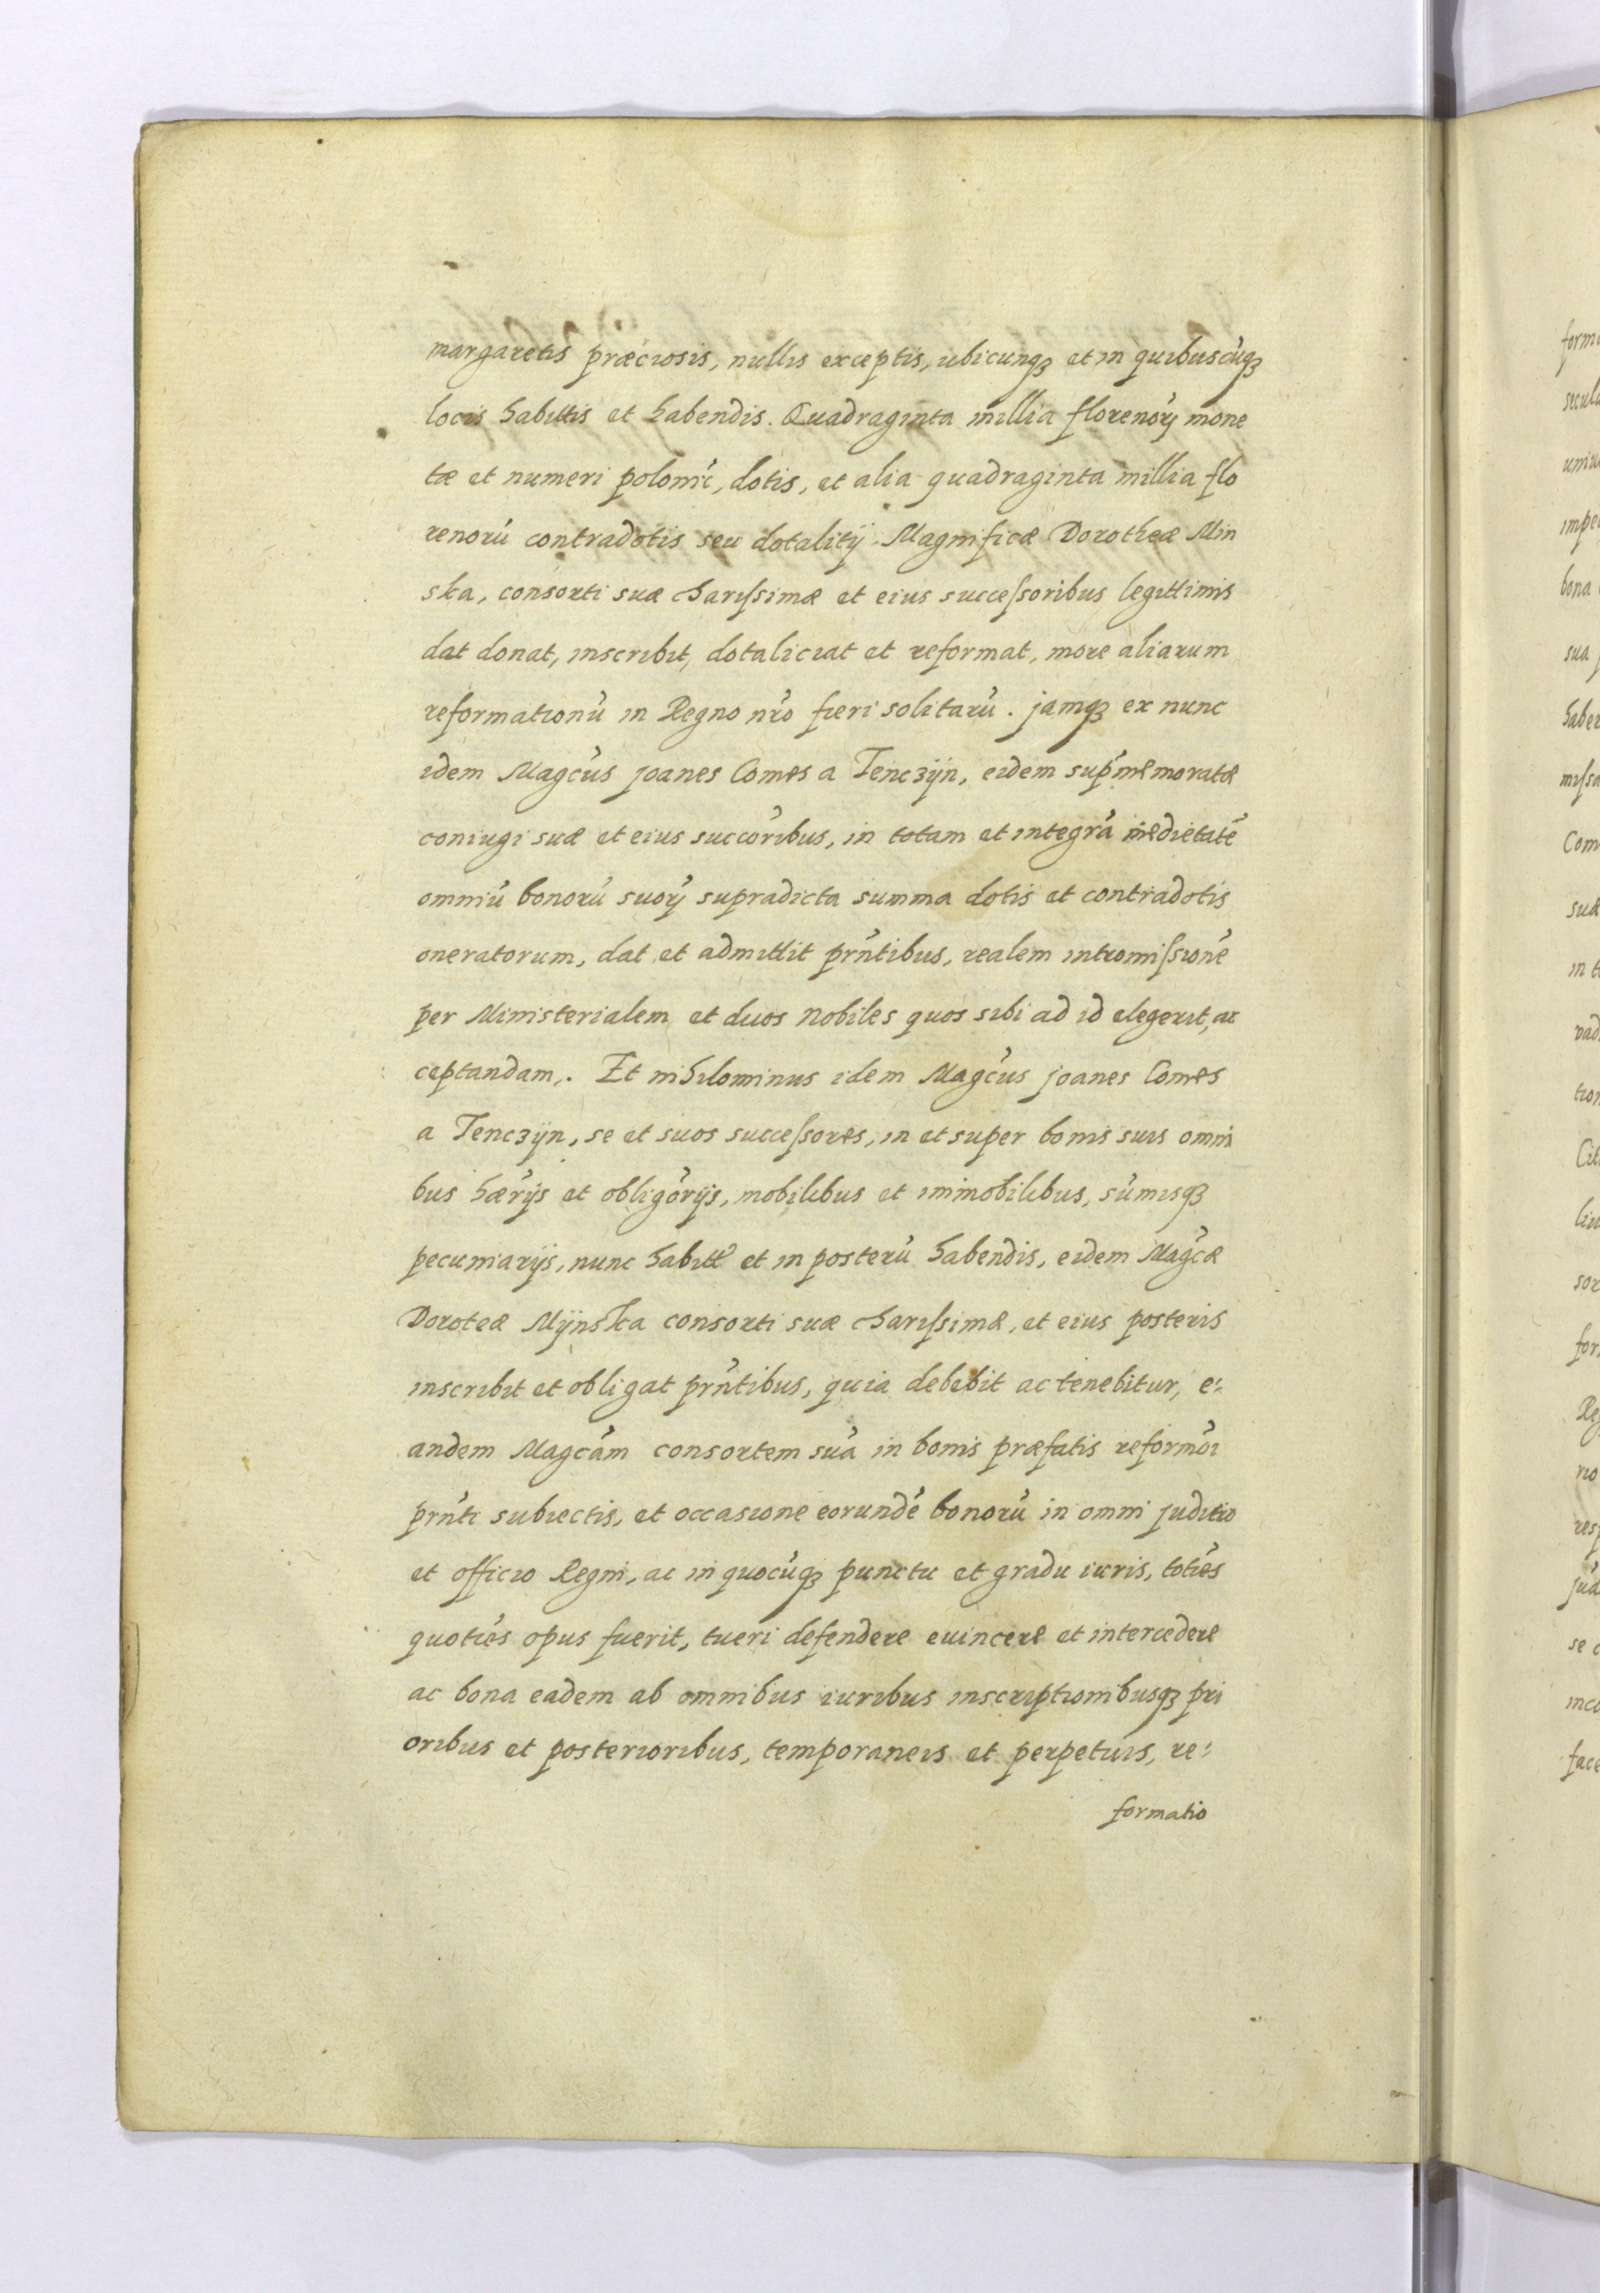 margaretis præciosis, nullis exceptis, ubicunqꝫ et in quibuscuqꝫ
locis habittis et habendis. Quadraginta millia florenoꝝ mone
tæ et numeri polonic, dotis, et alia quadraginta millia flo
renorū contradotis seu dotalitij Magnificæ Dorotheæ Min
ska, consorti suæ chariſsimæ et eius succeſsoribus legittimis
dat donat, inscribit, dotaliciat et reformat, more aliarum
reformationū in Regno nr̄o fieri solitarū. jamqꝫ ex nunc
idem Magc̄us joanes Comes a Tenczÿn, eidem sup̄memoratæ
coniugi suæ et eius succōribus, in totam et integrā medietatē
omniū bonorū suoꝝ supradicta summa dotis et contradotis
oneratorum, dat et admittit prn̄tibus, realem intromiſsionē
per Ministerialem et duos nobiles quos sibi ad id elegerit, ac
ceptandam. Et nihilominus idem Magc̄us joanes Comes
a Tenczÿn, se et suos succeſsores, in et super bonis suis omni
bus hær̄ijs et obligōrijs, mobilibus et immobilibus, sūmisqꝫ
pecuniarijs, nunc habitt̄ et in posterū habendis, eidem Magc̄æ
Doroteæ Mÿnska consorti suæ chariſsimæ, et eius posteris
inscribit et obligat prn̄tibus, quia debebit ac tenebitur, e-
andem Magcām consortem suā in bonis præfatis reformōi
prn̄ti subiectis, et occasione eorundē bonorū in omni juditio
et officio Regni, ac in quocūqꝫ punctu et gradu iuris, totiēs
quotiēs opus fuerit, tueri defendere euincere et intercedere
ac bona eadem ab omnibus iuribus inscriptionibusqꝫ pri
oribus et posterioribus, temporaneis et perpetuis, re-
formatio